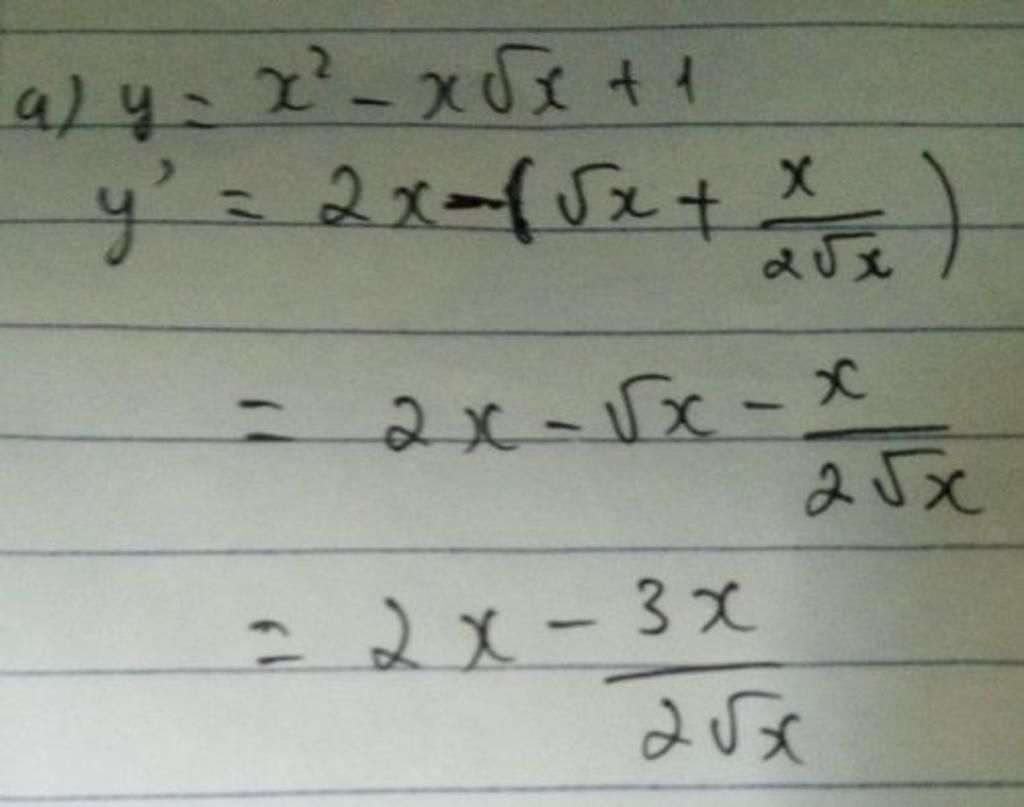 a) y = x² - x√x + 1
y' = 2x - (√x + x/2√x)
= 2x - √x - x/2√x
= 2x - 3x/2√x